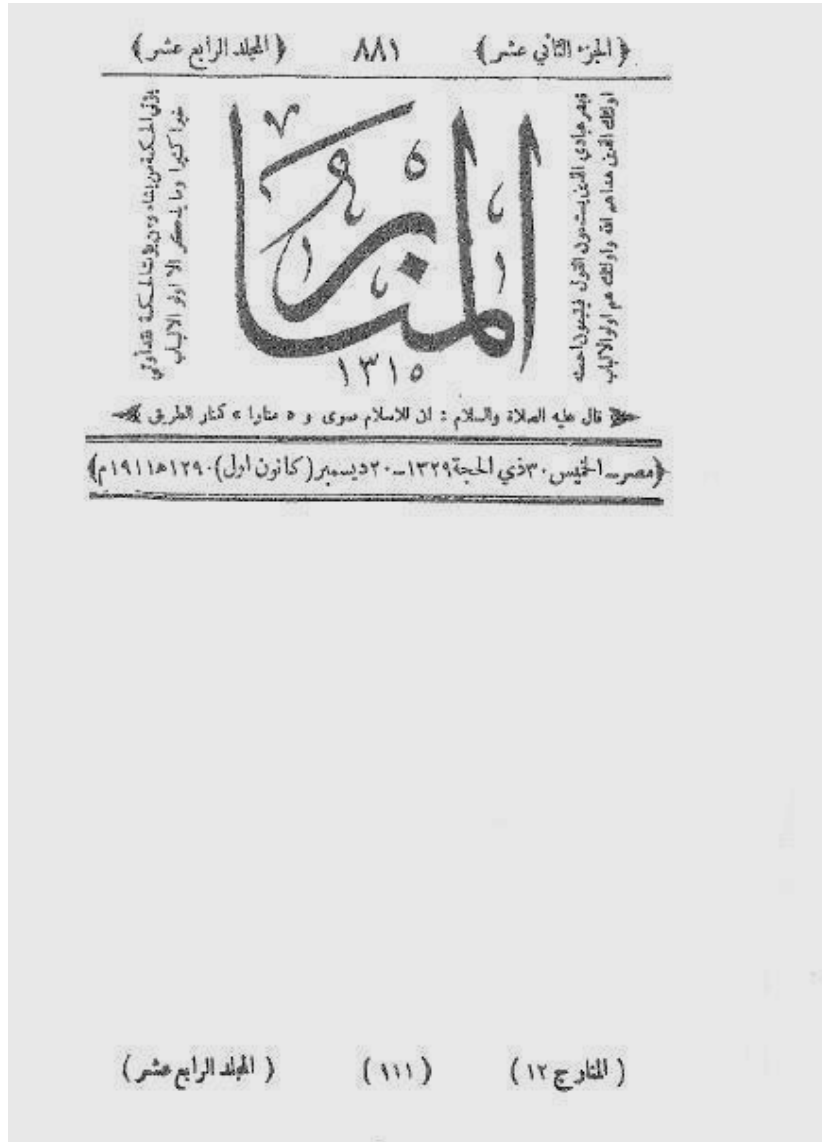 ﴿ الجزء الثاني عشر ﴾ ٨٨١ ﴿ المجلد الرابع عشر ﴾
فبشر عبادي الذين يستمعون القول فيتبعون احسنه
اولئك الذين هداهم الله واولئك هم اولو الالباب
المنار
١٣١٥
يؤتي الحكمة من يشاء ومن يؤت الحكمة فقد أوتي
خيرا كثيرا وما يذكر الا اولو الالباب
قال عليه الصلاة والسلام : ان للاسلام صوى و « منارا » كمنار الطريق
﴿مصر ــ الخميس ٣٠ ذي الحجة ١٣٢٩ ــ ٢٠ ديسمبر (كانون اول) ١٢٩٠ﻫ ١٩١١م﴾
( المنار ج ١٢ ) ( ١١١ ) ( المجلد الرابع عشر )